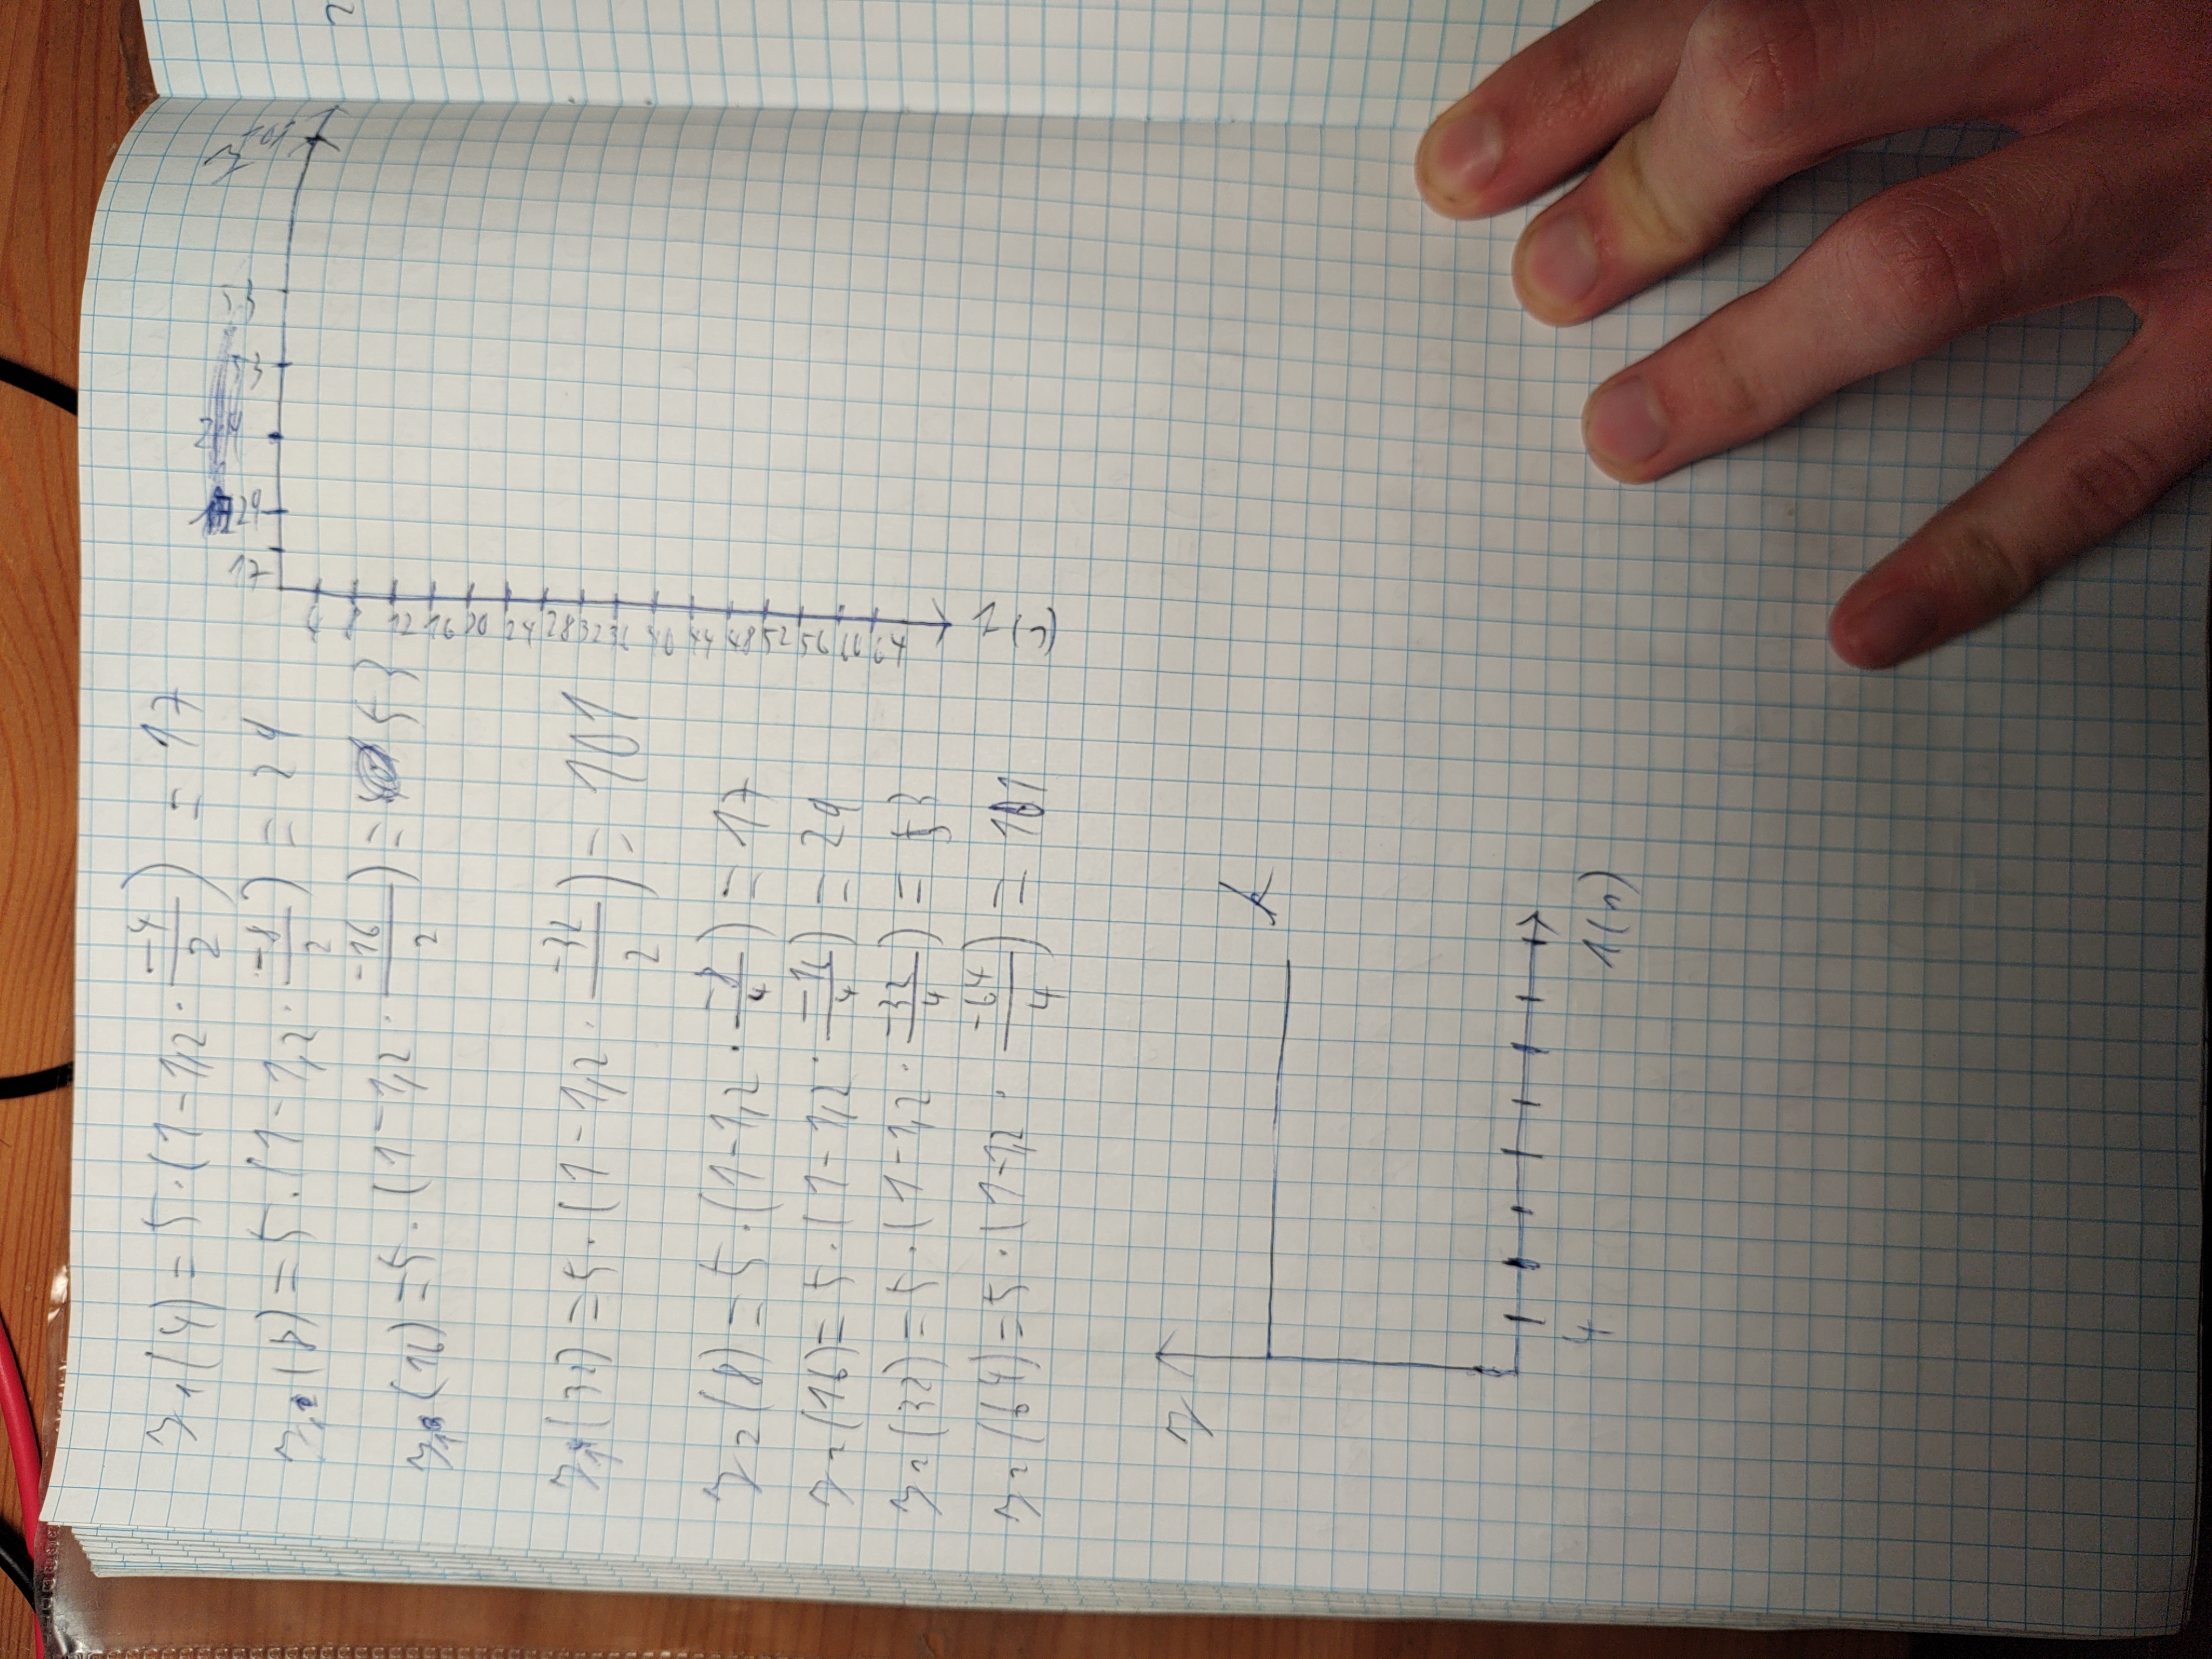 y₁(4) = 5·(1-1,2·(-4/2)) = 17
y₁(8) = 5·(1-1,2·(-8/2)) = 29
y₁(16) = 5·(1-1,2·(-16/2)) = 53
y₁(32) = 5·(1-1,2·(-32/2)) = 101
y₂(8) = 5·(1-1,2·(-8/4)) = 17
y₂(16) = 5·(1-1,2·(-16/4)) = 29
y₂(32) = 5·(1-1,2·(-32/4)) = 53
y₂(64) = 5·(1-1,2·(-64/4)) = 101
y
k
4
1(n)
y
101
53
29
17
4 8 12 16 20 24 28 32 36 40 44 48 52 56 60 64